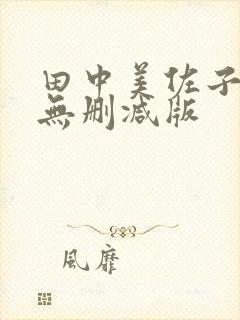 田中美佐子
無删减版
風靡